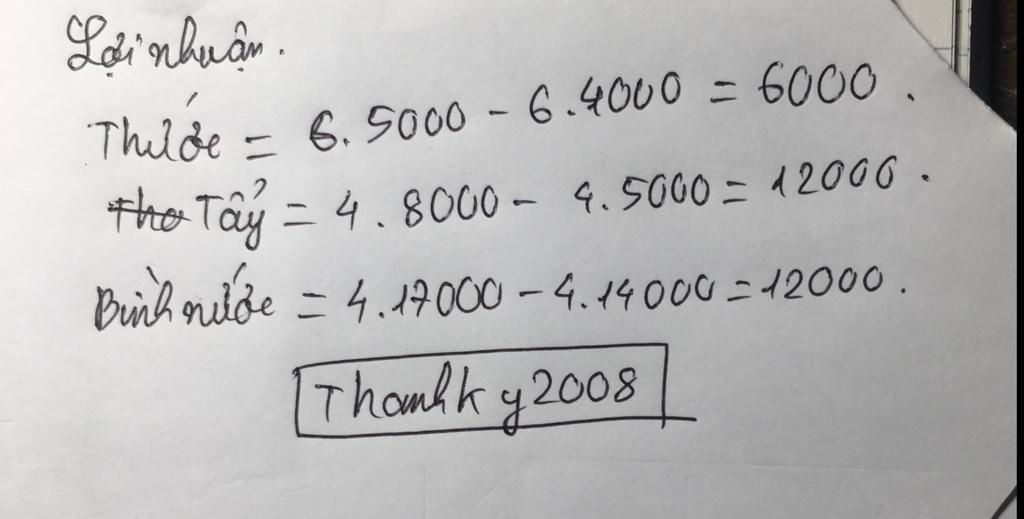 Lợi nhuận.
Thước = 6.5000 - 6.4000 = 6000.
Tho Tẩy = 4.8000 - 4.5000 = 12000.
Bình nước = 4.17000 - 4.14000 = 12000.
Thanhk y2008